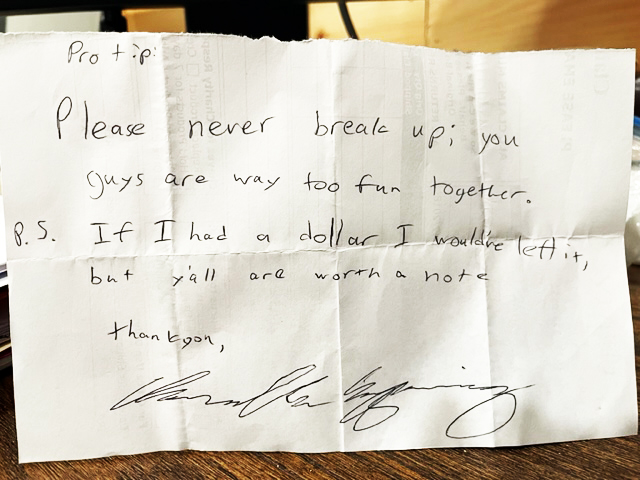 Pro tip:
Please never break up; you
guys are way too fun together.
P.S. If I had a dollar I would've left it,
but y'all are worth a note
thank you,